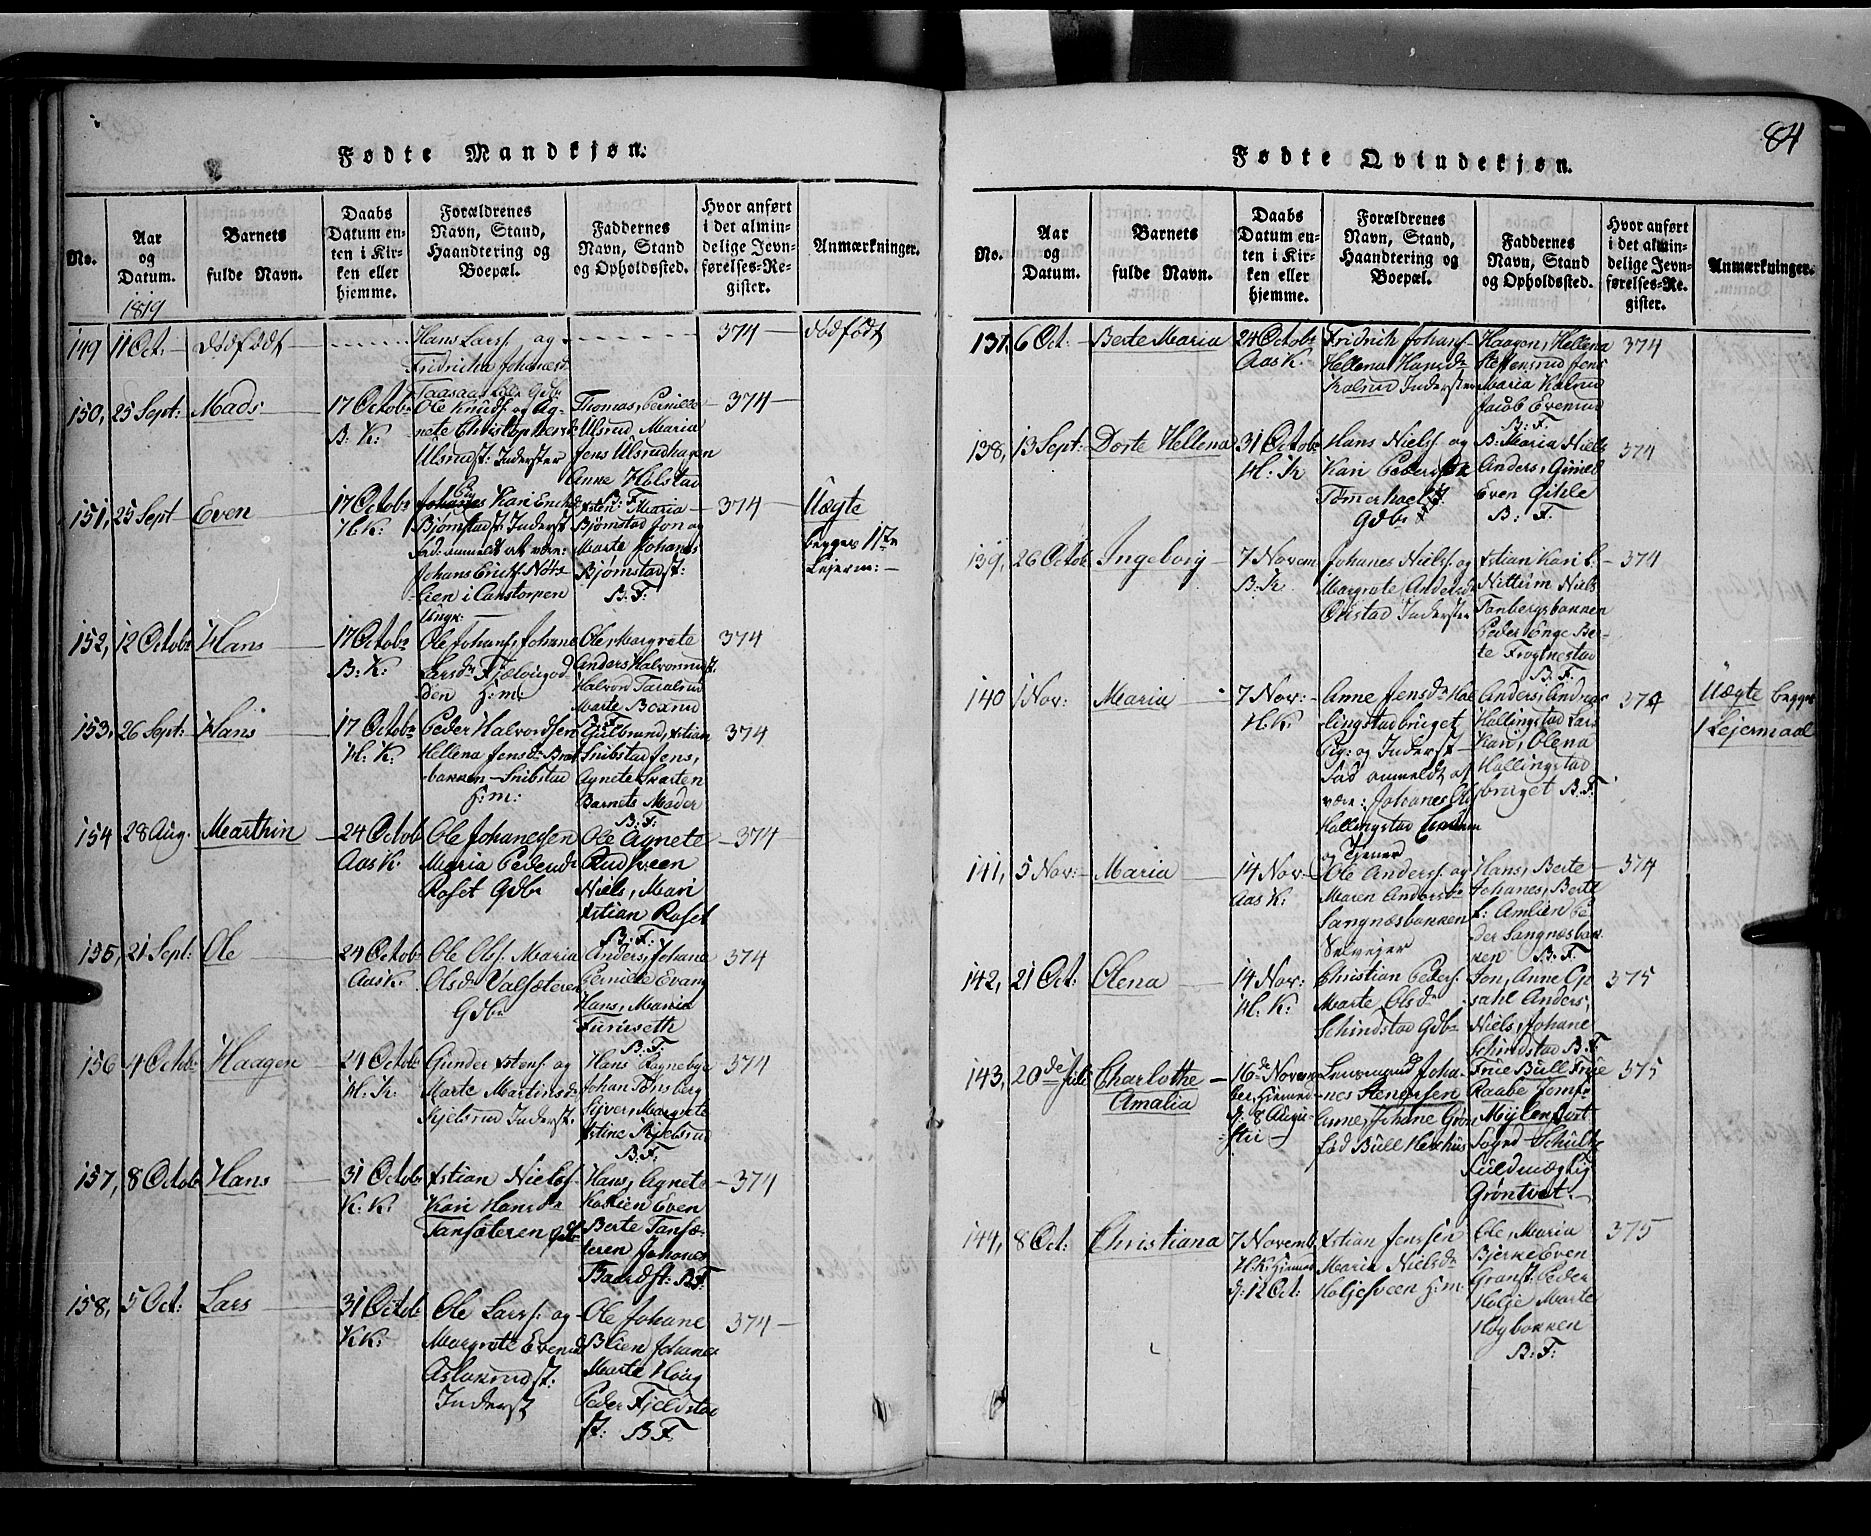 84
Fødte Mandkjøn.
No.
Aar
og
Datum.
Barnets
fulde Navn.
Daabs
Datum en-
ten i Kir-
ken eller
hjemme.
Forældrenes
Navn, Stand,
Haandtering og
Boepæl.
Faddernes
Navn, Stand
og Opholdssted.
Hvor anført
i det almin-
delige Jevn-
førelses-Re-
gister.
Anmærkninger.
1819
149 11 Oct: dødfødt
Hans Larss: og
Fridricha Johanesd:
374
dødfødt
150, 25 Sept: Mads
17 Octobr
B: K:
Ole Knuds: og Ag-
nete Christophersd:
Ulsrudst: Inderster
Thomas, Pernille
Ulsrud Maria
Jens Ulsrudhagen
Anne Holstad
B: F:
374
151, 25 Sept Even
17 Octobr
H: K:
Pig
Kari Erichsd
Bjømstadst: Inderst
Fad: anmeldt at være:
Johans Erichs:
lien i
Ungk:
Maria
Bjømstad Jon og
Marte Johanes
Bjømstadst:
B: F:
374
Uægte
begges 1ste
Lejerm:
152, 12 Octobr Hans
17 Octobr
B: K:
Ole Johans: Johane
Larsdr
den H: m:
Ole, Margrete
Anders Halvorsrudst.
Halvor Taralrud
Marte Boxrud
B: F:
374
153, 26 Sept: Hans
17 Octobr
H: K:
Peder Halvordsen
Hellena Jensdr
bakken Snibstad
H: m:
Gulbrand, Kstian
Snibstad Jens,
Agnete
Barnets Moder
B: F:
374
154 28 Aug. Marthin
24 Octob
Aas K:
Ole Johanesen
Maria Pedersdr
Roset Gdbr
Ole Agnete
Niels, Mari
Kstian Roset
B: F:
374
155, 21 Sept: Ole
24 Octob
Aas K:
Ole Ols: Maria
Olsdr Valsæteren
Gdbr
Anders, Johana
Pernille Evans
Hans, Maria
Furuseth
B: F:
374
156 4 Octobr Haagen
24 Octob
H: K:
Gunder Kstens: og
Marte Martinsdr
Kjelsrud Inderst:
Hans Rognebye
Johan Tønsberg
Sijver, Margrete
Kstine Kjelsrud
B: F:
374
157, 8 Octob Hans
31 Octob
K: K:
Kstian Niels:
Kari Hansdr
Tansæteren Gdbr
Hans, Agnete
Kaslien Even
Berte Tansæ-
teren Johanes
Baardst: B: F:
374
158, 5 Oct: Lars
31 Octob
K K:
Ole Larss: og
Margrete Evensd
Aslaksrudst:
Inderst
Ole Johane
Blien Johanes
Marte Houg
Peder Fjeldstad
st: B F:
374
Fødte Qvindekjøn.
No.
Aar
og
Datum.
Barnets
fulde Navn.
Daabs
Datum en-
ten i Kir-
ken eller
hjemme.
Forældrenes
Navn, Stand,
Haandtering og
Boepæl.
Faddernes
Navn, Stand
og Opholdssted.
Hvor anført
i det almin-
delige Jevn-
førelses-Re-
gister.
Anmærkninger.
137, 6 Oct: Berte Maria
24 Octobr
Aas K:
Fridrich Johans:
Hellena Hansdr
Kalrud Inderster
Haagen, Hellena
Steffensrud Jens
Maria Kalrud
Jacob Evensrud
B: F:
374
138, 13 Sept: Dorte Hellena
31 Octobr
H: K
Hans Niels: og
Kari Pedersdr
Gdbr
B: Maria Niels
Anders, Gunild
Even Gihle
B: F:
374
139, 26 Octob Ingeborg
7 Novem
B: K
Johanes Niels: og
Margrete Andersdr
Inderster
Kstian Kari L:
Nittum Niels
Tanbergsbakken
Peder Enge Ber-
te Frognestad
B: F:
374
140 1 Nov: Maria
7 Nov:
H: K:
Anne Jensdr Hal
lingstadbruget
Pig: og Inderst
Fad anmeldt at
være: Johanes
Hallingstad
og Tjener
Anders, Andreas
Hallingstad Lars
Kari, Olena
Hallingstad
bruget B: F:
374
Uægte begges
1 Lejermaal
141, 5 Nov: Maria
14 Nov:
Aas K:
Ole Anders: og
Maren Andersdr
Sangnæsbakken
Selvejer
Hans, Berte
Johanes, Berte
L: Amlien Pe
der Sangnæsbak
ken B: F:
374
142, 21 Oct: Olena
14 Nov:
H: K:
Christian Peders:
Marte Olsdr
Schindstad Gdbr
Jon, Anne Op
sahl Anders,
Niels, Johane
Schindstad B: F:
375
143, 20de Juli Charlothe
Amalia
16de Novem
ber, Hjemed
d: 8 Augu-
stii
Lensmand Joha-
nes Stenersen
Anne, Johane
Bull
Frue Bull Frue
Raabe Jomf:
Mijlenfort
Sogd Schultz
Fuldmægtig
Grøntvet
375
144, 8 Oct: Christiana
7 Novemb
H. K: Hjemed
d: 12 Oct:
Kstian Jenssen
Maria Nielsdr
Holjesveen H: m:
Ole, Maria
Bjerke Even
Granst: Peder
Holje Marte
Høgbakken
B: F:
375